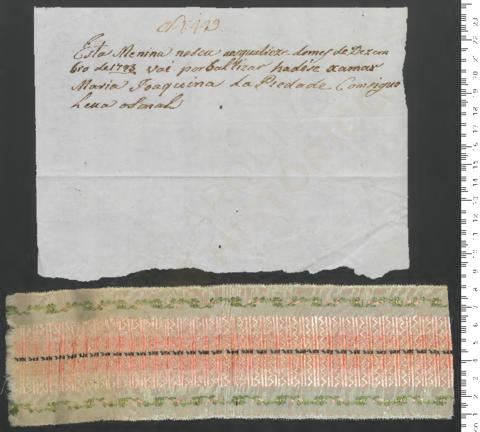 Nº 449
Esta Menina noscu aos quatorze domes de Dezem
bro de 1793 vai por baltizar hadese xamar
Maria Joaquina da Piedade Comsiguo
Leua o sinal